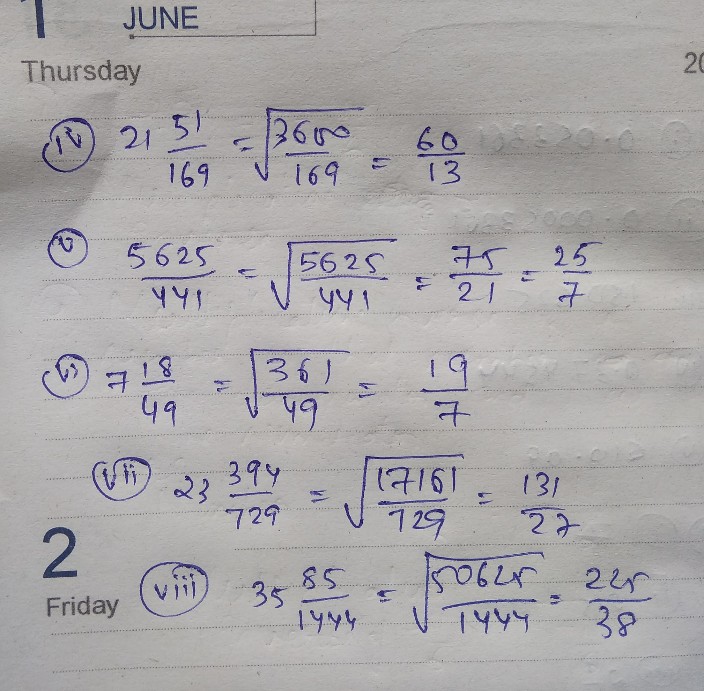 1 JUNE
Thursday 20
iv 21 51/169 = √3600/169 = 60/13
v 5625/441 = √5625/441 = 75/21 = 25/7
vi 7 18/49 = √361/49 = 19/7
vii 23 394/729 = √17161/729 = 131/27
2
Friday viii 35 85/1444 = √50625/1444 = 225/38